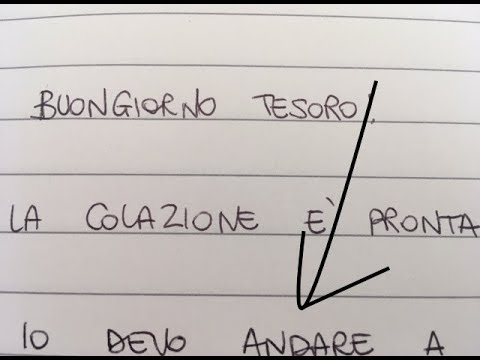 BUONGIORNO TESORO,
LA COLAZIONE E' PRONTA
IO DEVO ANDARE A